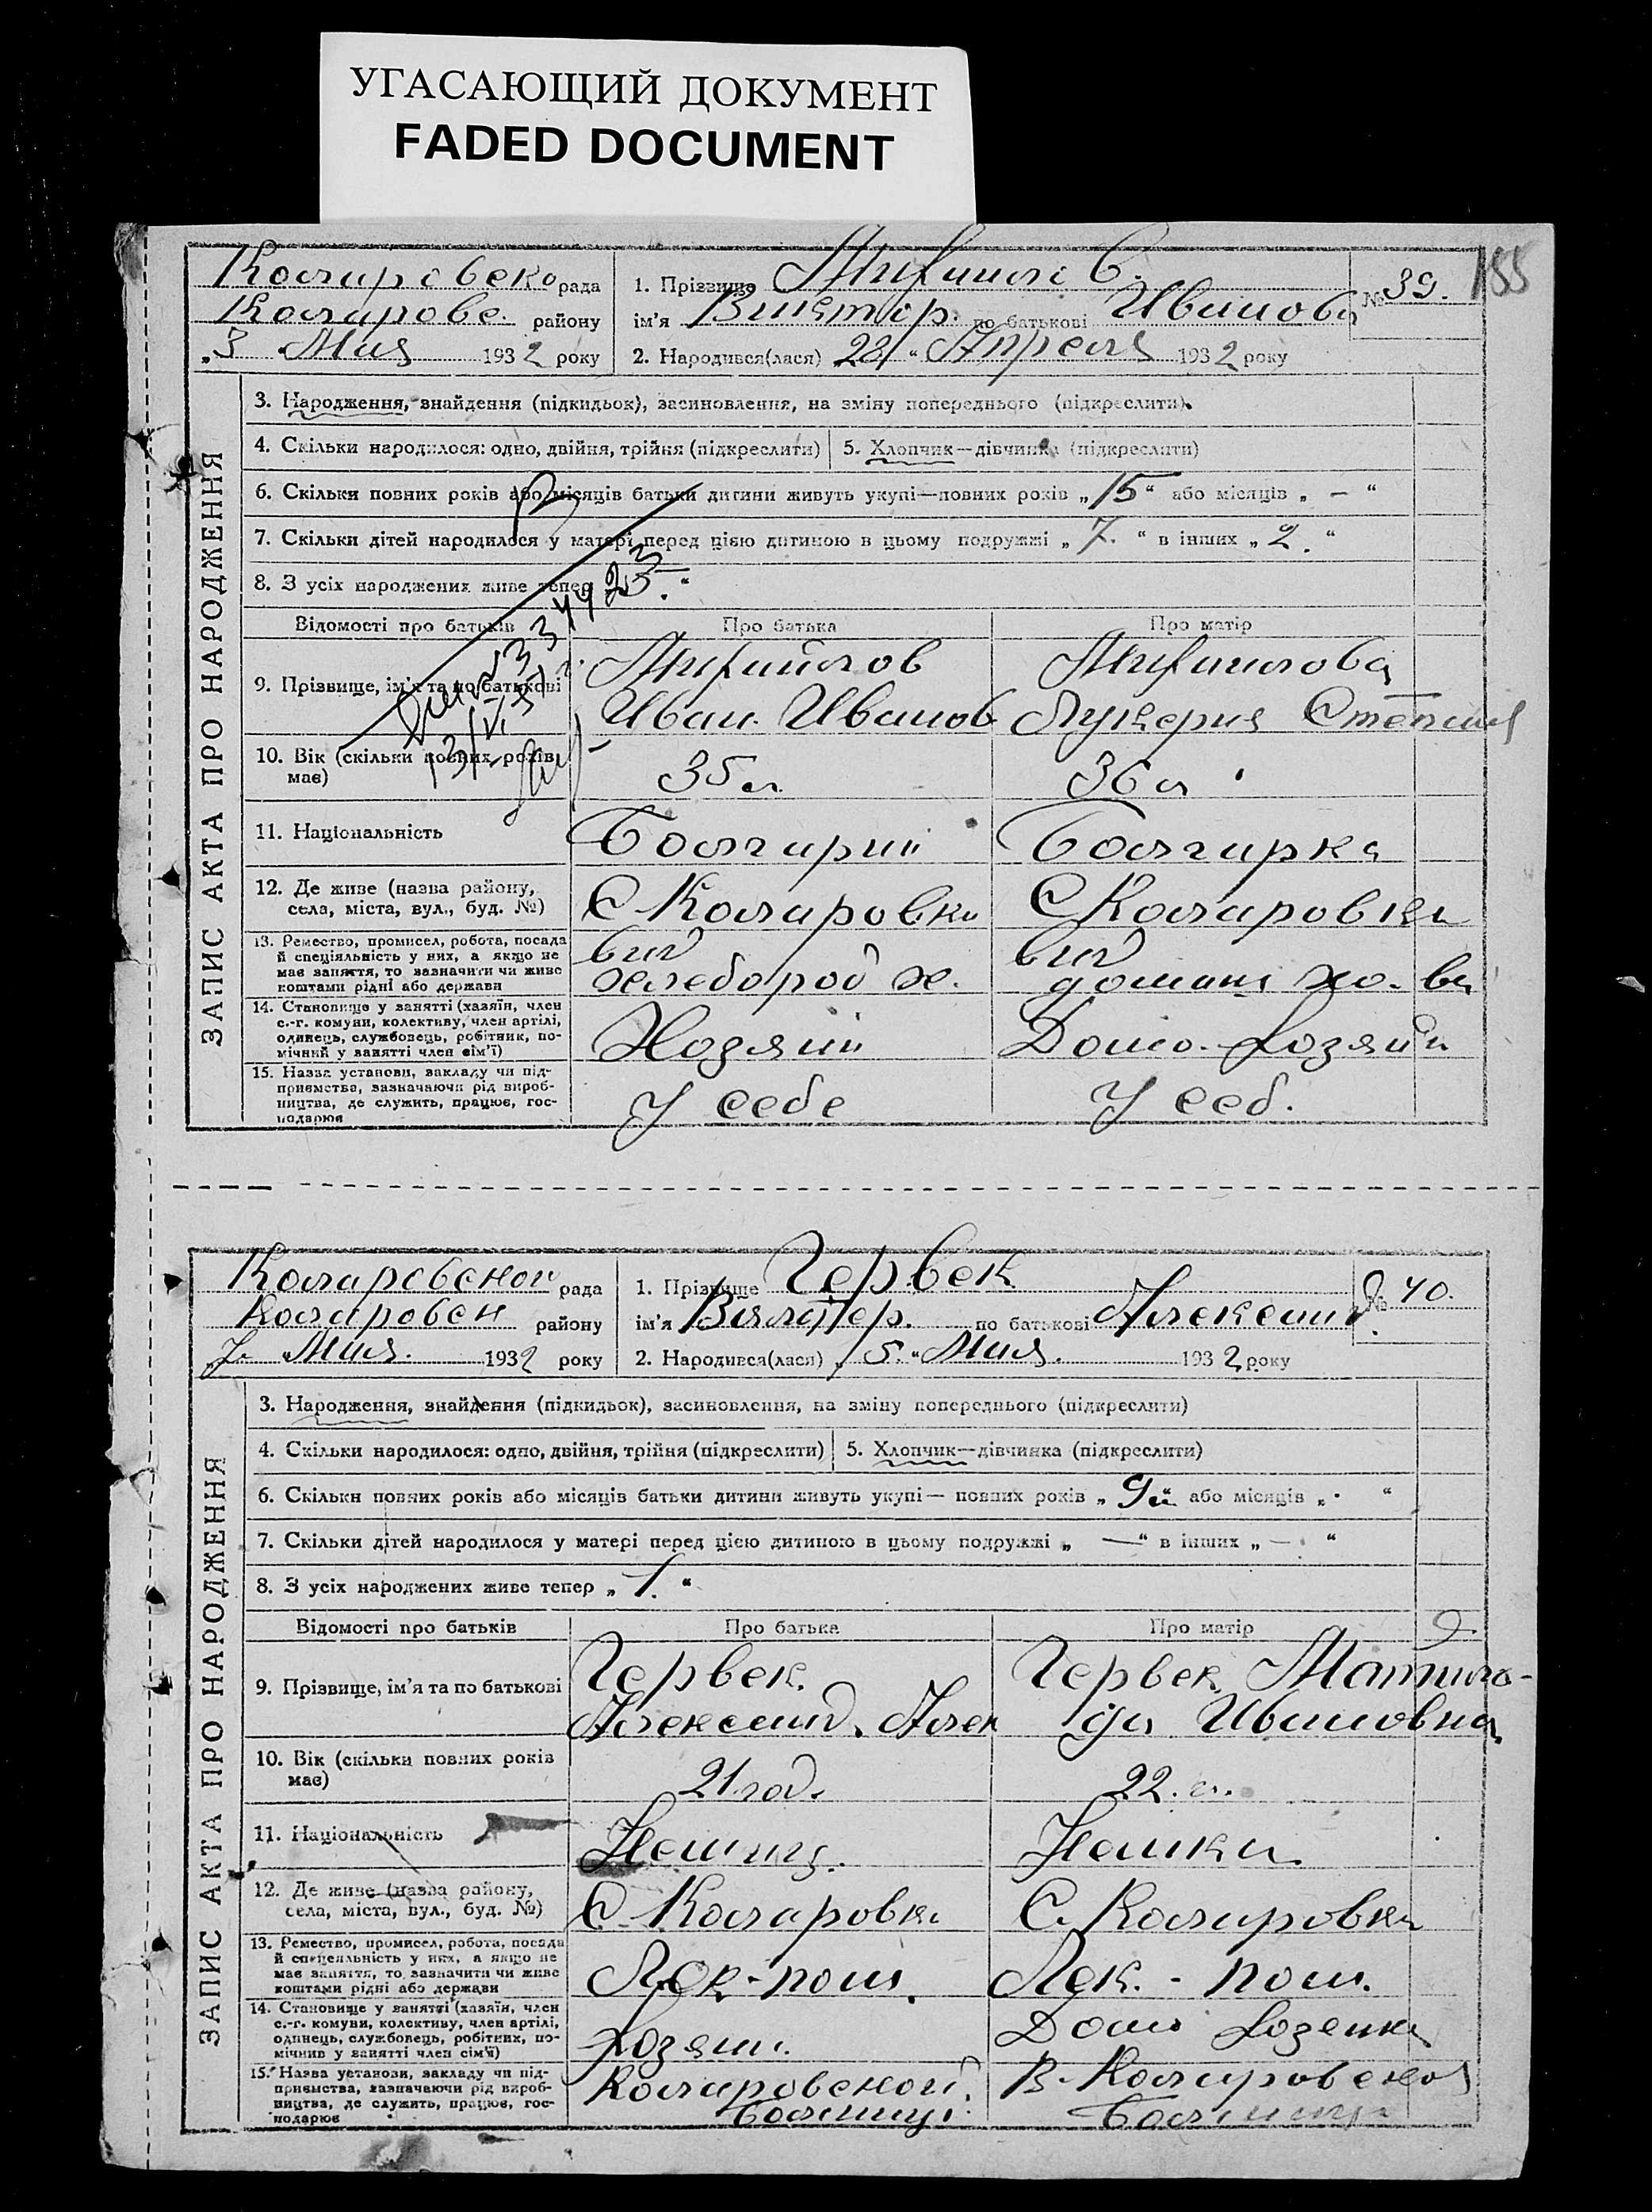 УГАСАЮЩИЙ ДОКУМЕНТ
FADED DOCUMENT
155
Коларовско рада
Коларовс. району
„3 Мая 1932 року
1. Прізвище Михайлов.
ім'я Виктор. по батькові Иванов
№ 39.
2. Народився(лася) „28“ Апреля 1932 року
ЗАПИС АКТА ПРО НАРОДЖЕННЯ
3. Народження, знайдення (підкидьок), засиновлення, на зміну попереднього (підкреслити).
4. Скільки народилося: одно, двійня, трійня (підкреслити)
5. Хлопчик—дівчинка (підкреслити)
6. Скільки повних років або місяців батьки дитини живуть укупі—повних років „15“ або місяців „ – “
7. Скільки дітей народилося у матері перед цією дитиною в цьому подружжі „7.“ в інших „2.“
8. З усіх народжених живе тепер
Відомості про батьків
Про батька
Про матір
9. Прізвище, ім'я та по батькові
Михайлов
Иван. Иванов
Михайлова
Лукерия Степан
10. Вік (скільки повних років має)
35 л.
36 л
11. Національність
Болгарин
Болгарка
12. Де живе (назва району, села, міста, вул., буд. №)
С Коларовка
С Коларовка
13. Ремество, промисел, робота, посада
й спеціяльність у них, а якщо не
має заняття, то зазначити чи живе
коштами рідні або держави
хлебороб х.
домаш хо-ва
14. Становище у занятті (хазяїн, член
с.-г. комуни, колективу, член артілі,
одинець, службовець, робітник, по-
мічний у занятті член сім'ї)
Хозяин
Домо-Хозяйн
15. Назва установи, закладу чи під-
приємства, зазначаючи рід вироб-
ництва, де служить, працює, гос-
подарює
У себе
У себ.
Коларовской рада
Коларовск району
7. Мая. 1932 року
1. Прізвище Червек
ім'я Вальтер. по батькові Александ
№ 40.
2. Народився(лася) „5.“ Мая. 1932 року
ЗАПИС АКТА ПРО НАРОДЖЕННЯ
3. Народження, знайдення (підкидьок), засиновлення, на зміну попереднього (підкреслити)
4. Скільки народилося: одно, двійня, трійня (підкреслити)
5. Хлопчик—дівчинка (підкреслити)
6. Скільки повних років або місяців батьки дитини живуть укупі— повних років „9 “ або місяців „ · “
7. Скільки дітей народилося у матері перед цією дитиною в цьому подружжі „ — “ в інших „ — “
8. З усіх народжених живе тепер „1.“
Відомості про батьків
Про батька
Про матір
9. Прізвище, ім'я та по батькові
Червек.
Александ. Алек
Червек Матиль-
да Ивановна
10. Вік (скільки повних років має)
21 год.
22. л.
11. Національність
Немец.
Немка.
12. Де живе (назва району, села, міста, вул., буд. №)
С Коларовка
С. Коларовка
13. Ремество, промисел, робота, посада
й спеціяльність у них, а якщо не
має заняття, то зазначити чи живе
коштами рідні або держави
Лек-пом.
Лек.-пом.
14. Становище у занятті (хазяїн, член
с.-г. комуни, колективу, член артілі,
одинець, службовець, робітник, по-
мічний у занятті член сім'ї)
Хозяин.
Домо Хозейка
15. Назва установи, закладу чи під-
приємства, зазначаючи рід вироб-
ництва, де служить, працює, гос-
подарює
Коларовской.
Больница
В. Коларовской
Больница